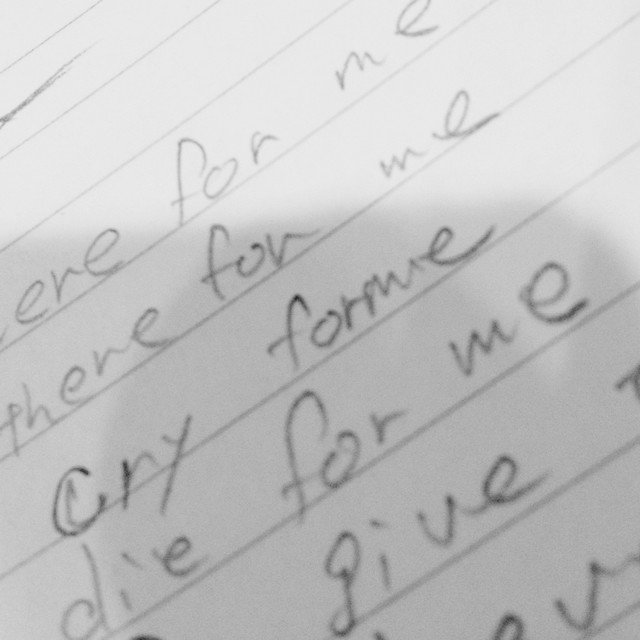 for me
there for me
cry for me
die for me
give